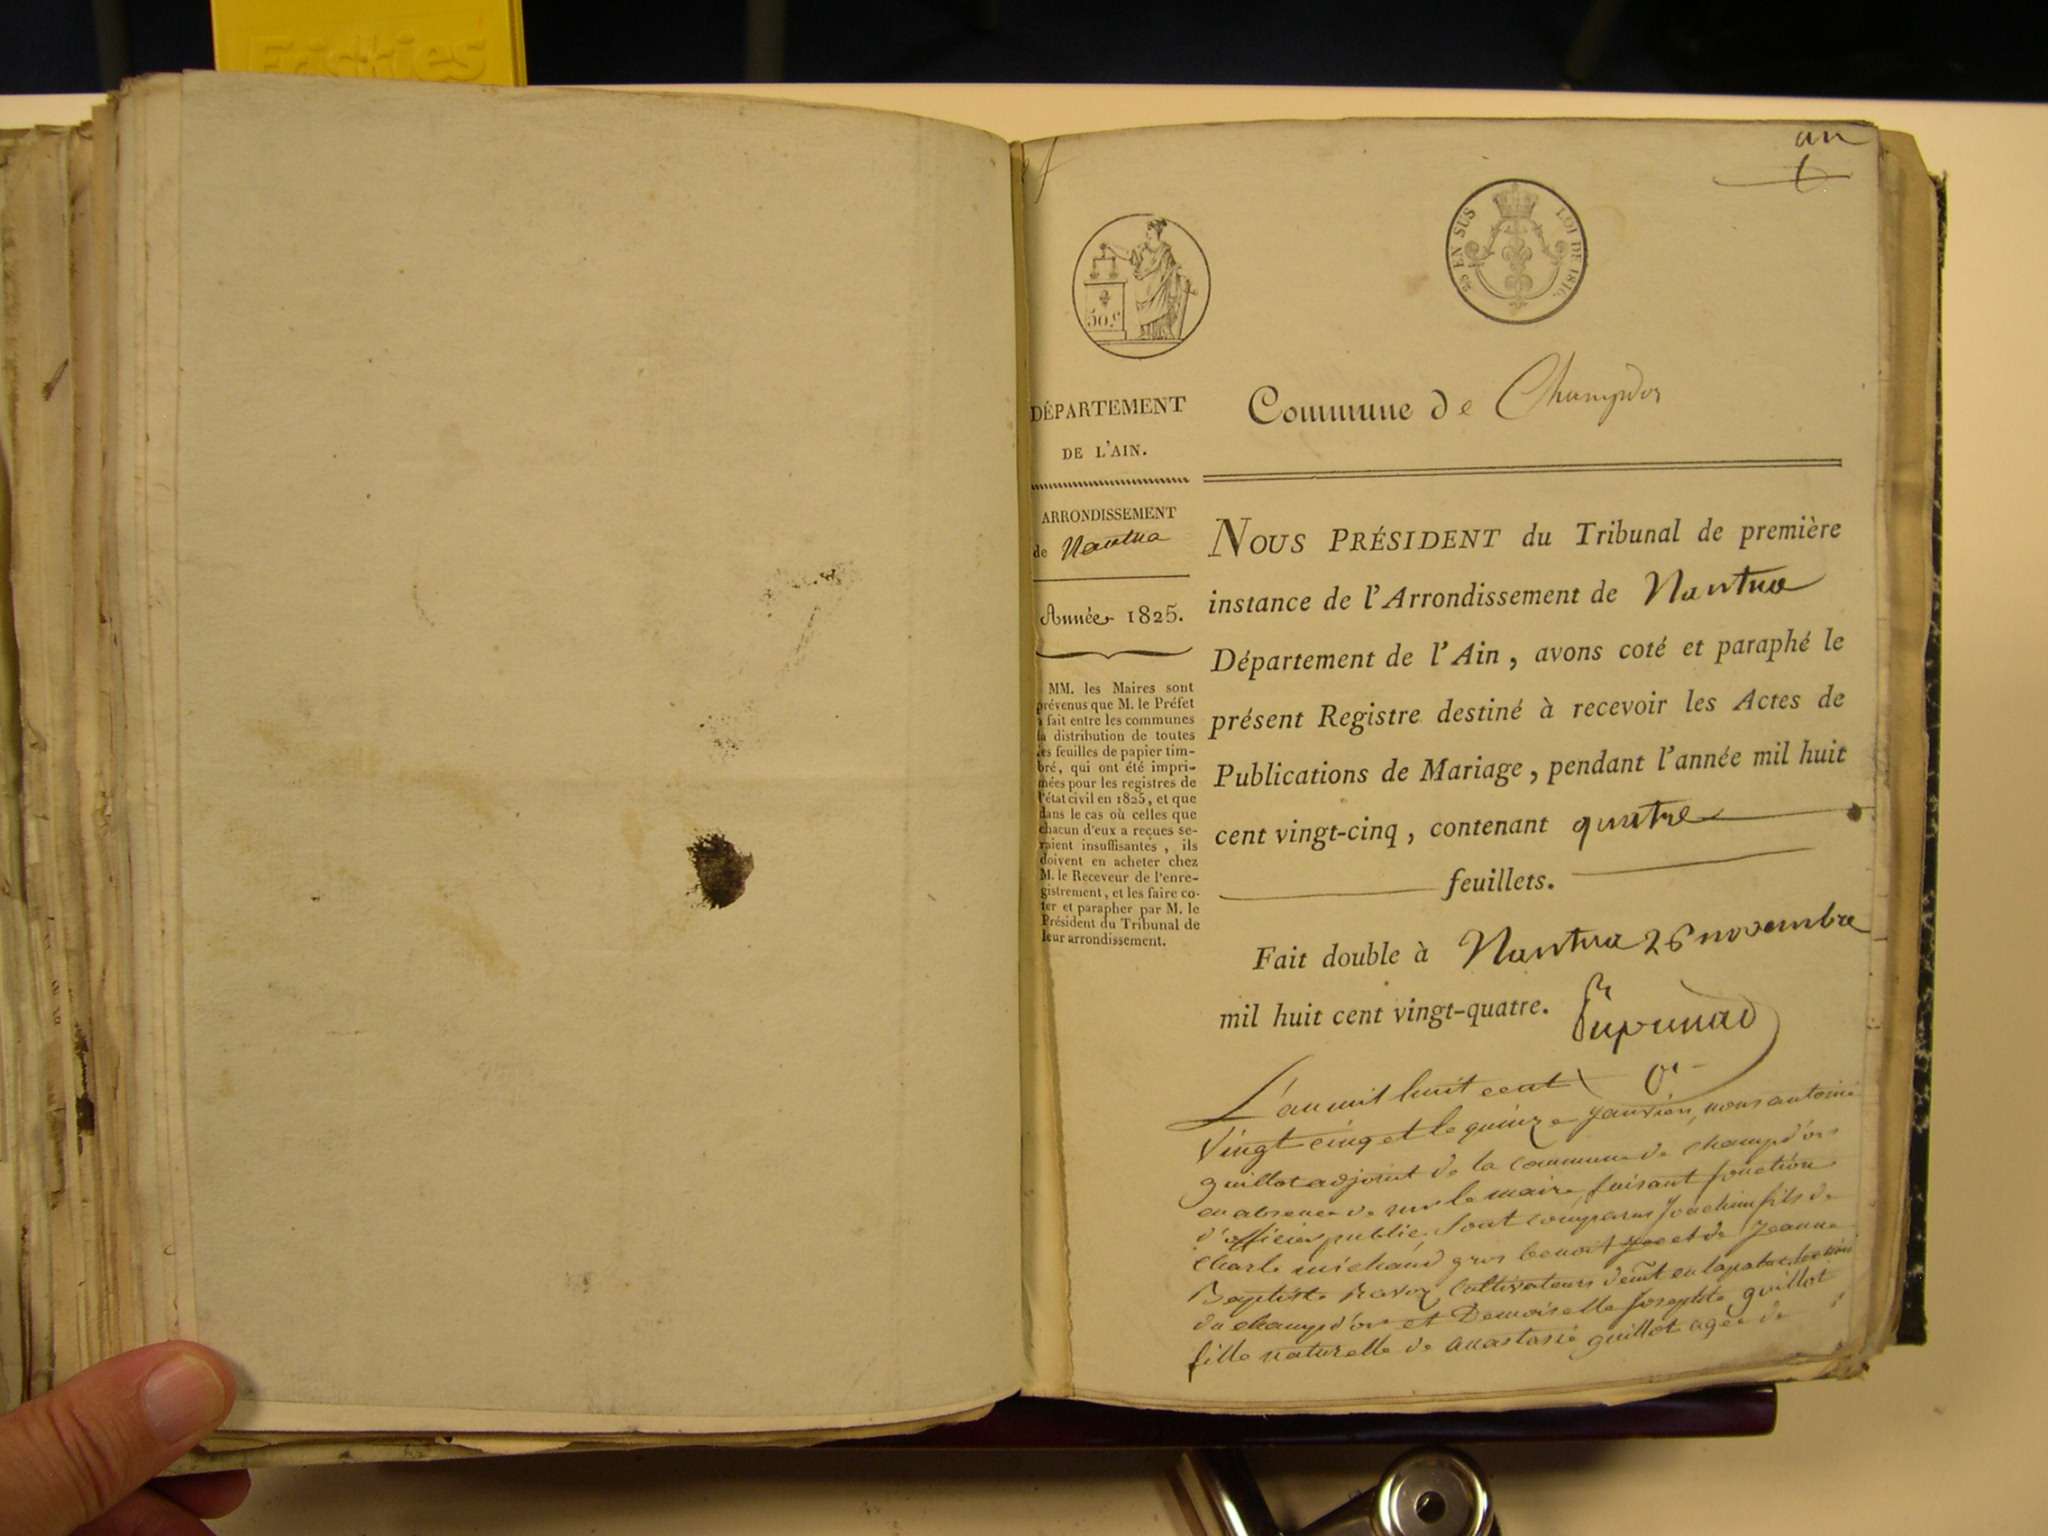 Friskies
un
¼ EN SUS
LOI DE 1816.
50.c
DÉPARTEMENT
DE L'AIN.
ARRONDISSEMENT
de Nantua
Année 1825.
MM. les Maires sont
prévenus que M. le Préfet
a fait entre les communes
la distribution de toutes
les feuilles de papier tim-
bré, qui ont été impri-
mées pour les registres de
l'état civil en 1825, et que
dans le cas où celles que
chacun d'eux a reçues se-
raient insuffisantes, ils
doivent en acheter chez
M. le Receveur de l'enre-
gistrement, et les faire co-
ter et parapher par M. le
Président du Tribunal de
leur arrondissement.
Commune de Champdor
NOUS PRÉSIDENT du Tribunal de première
instance de l'Arrondissement de Nantua
Département de l'Ain, avons coté et paraphé le
présent Registre destiné à recevoir les Actes de
Publications de Mariage, pendant l'année mil huit
cent vingt-cinq, contenant quatre
feuillets.
Fait double à Nantua 26 novembre
mil huit cent vingt-quatre.
L'an mil huit cent
vingt cinq et le quinze janvier, nous antoine
guillot adjoint de la commune de champd'or
en absence de mr le maire faisant fonction
d'officier public, sont comparus joachim fils de
charle michaud gros benoit et de jeanne
Baptiste Ravoz Cultivateurs demt en la
du champd'or et Demoiselle josephte guillot
fille naturelle de anastasie guillot agée de